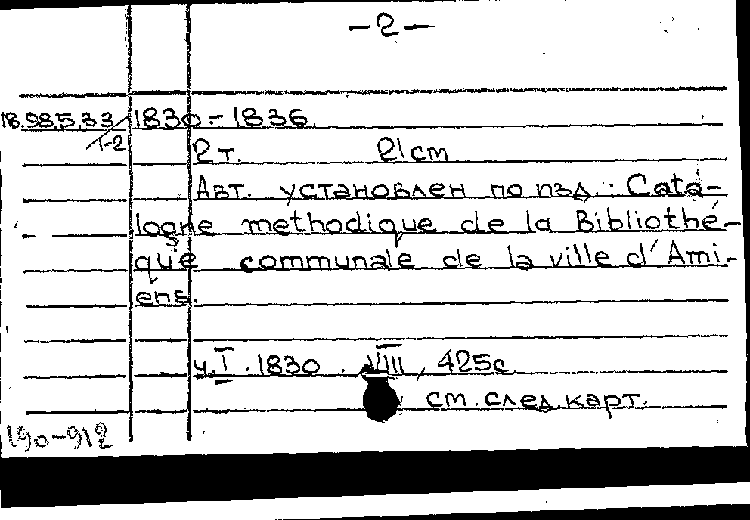 -2-
18.98.5.33/1-2 1830-1836
2т. 21cm
Авт. установлен по изд.: Cata-
logne methodique de la Bibliothé-
que communale de la ville d'Ami-
ens.
ч.I.1830. VIII, 425с
см. след. карт.
190-912